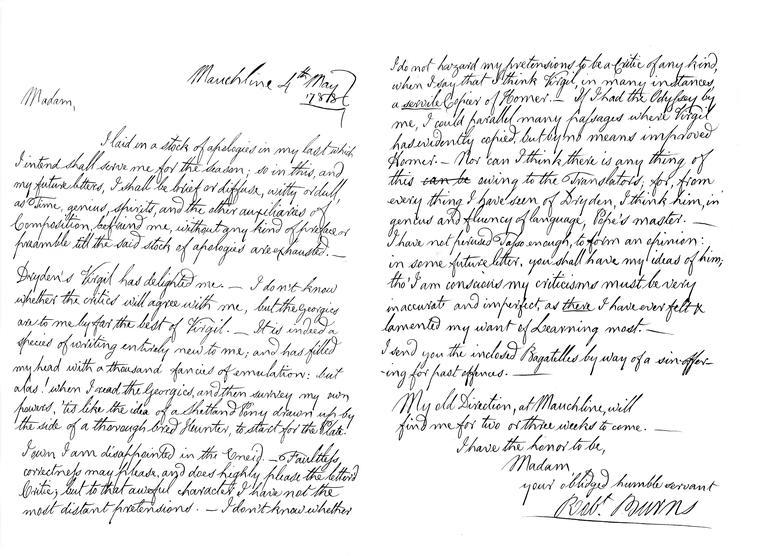 Mauchline 4th May
1788
Madam,
I laid in a stock of apologies in my last which
I intend shall serve me for the season; so in this, and
my future letters, I shall be brief or diffuse, witty or dull,
as Time, genius, spirits, and the other auxiliaries of
Composition, befriend me, without any kind of preface or
preamble till the said stock of apologies are exhausted. —
Dryden's Virgil has delighted me. — I don't know
whether the critics will agree with me, but the Georgics
are to me by far the best of Virgil. — It is indeed a
species of writing entirely new to me; and has filled
my head with a thousand fancies of emulation: but
alas! when I read the Georgics, and then survey my own
powers, 'tis like the idea of a Shetland Pony drawn up by
the side of a thorough bred Hunter, to start for the Plate.
I own I am disappointed in the Eneid. — Faultless
correctness may please, and does highly please the letter'd
Critic; but to that aweful character I have not the
most distant pretensions. — I don't know whether
I do not hazard my pretensions to be a Critic of any kind,
when I say that I think Virgil, in many instances,
a servile Copier of Homer. — If I had the Odyssey by
me, I could parallel many passages where Virgil
has evidently copied, but by no means improved
Homer. — Nor can I think there is any thing of
this can be owing to the Translators; for, from
every thing I have seen of Dryden, I think him, in
genius and fluency of language, Pope's master. —
I have not perused Tasso enough, to form an opinion:
in some future letter, you shall have my ideas of him;
tho' I am conscious my criticisms must be very
inaccurate and imperfect, as there I have ever felt &
lamented my want of Learning most. —
I send you the inclosed Bagatelles by way of a sin-offer-
-ing for past offences. —
My old Direction, at Mauchline, will
find me for two or three weeks to come. —
I have the honor to be,
Madam
your obliged humble servant
Robt. Burns